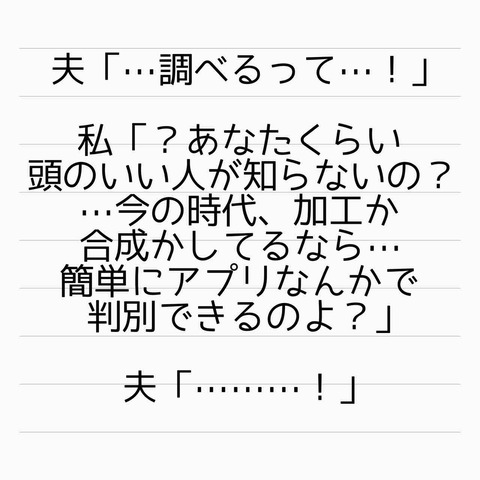 夫「…調べるって…！」
私「？あなたくらい
頭のいい人が知らないの？
…今の時代、加工か
合成かしてるなら…
簡単にアプリなんかで
判別できるのよ？」
夫「………！」